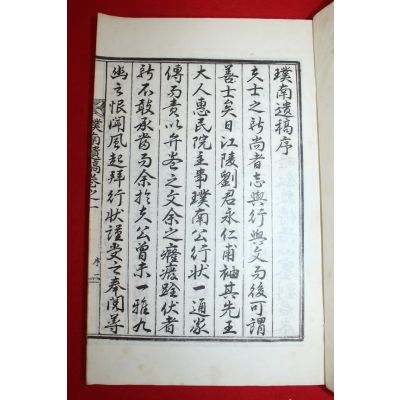 璞南遺稿序
夫士之所尚者志與行與文而後可謂
善士矣日江陵劉君永仁甫袖其先王
大人惠民院主事璞南公行狀一通家
傳而責以弁卷之文余之癃廢跧伏者
所不敢承當而余於夫公曾未一雅九
幽之恨聞風起拜行狀謹受之奉閱尋
璞南遺稿卷之一
序